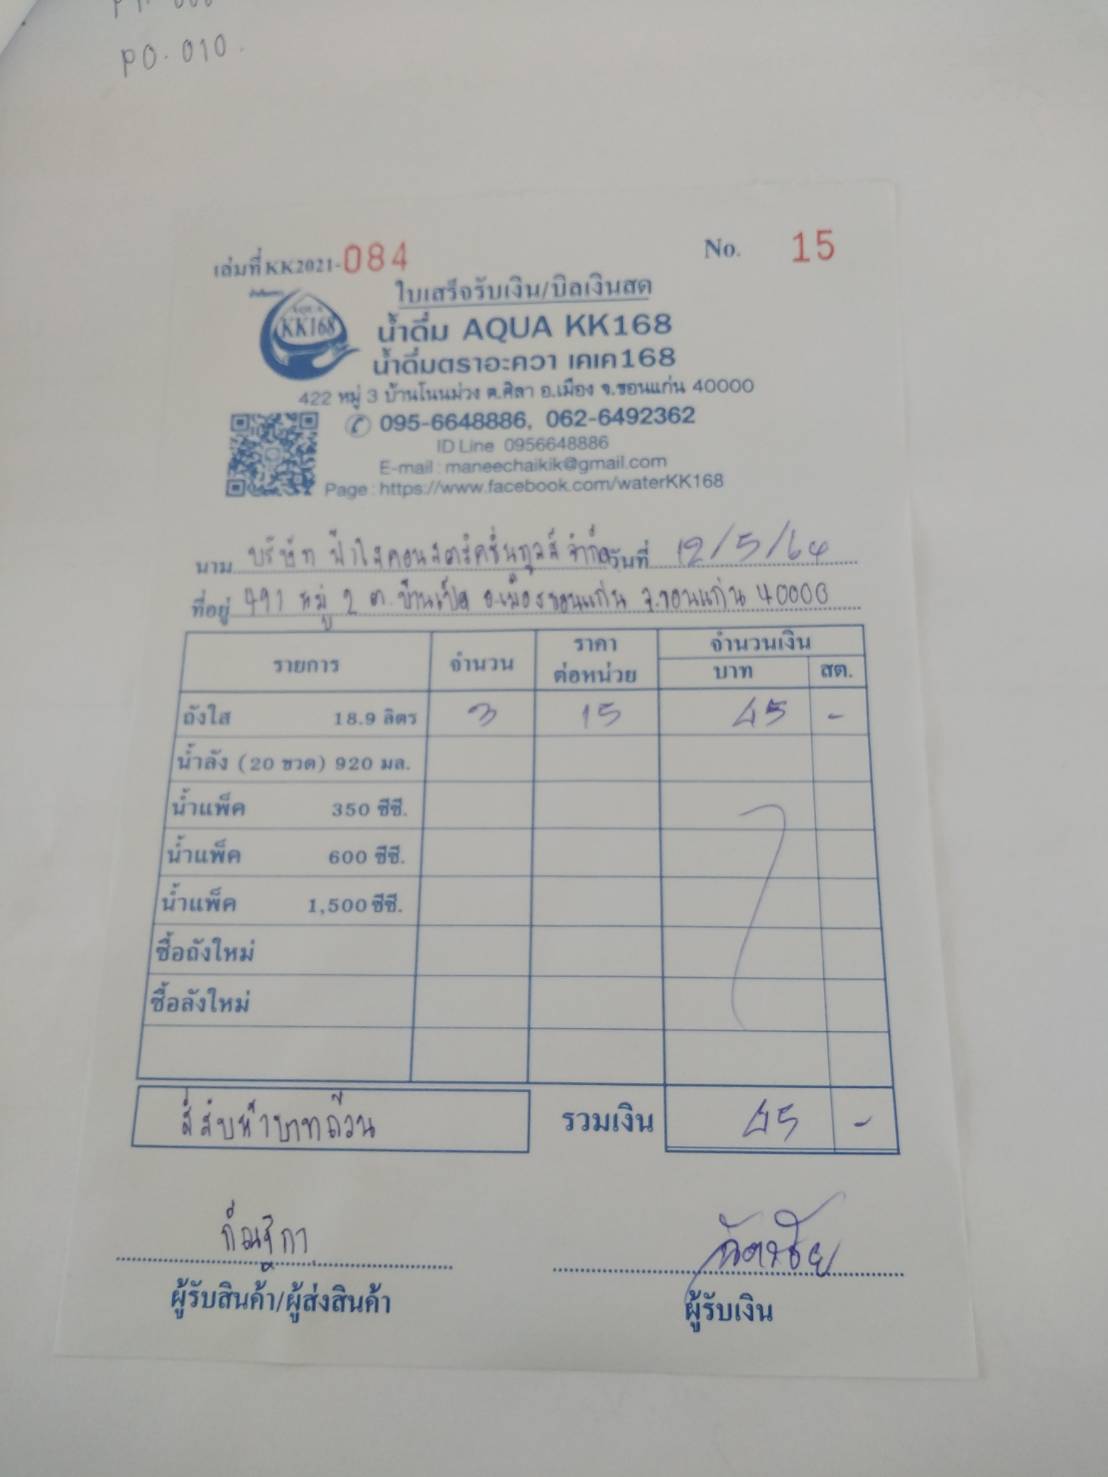 PO-010.
เล่มที่ KK2021-084 No. 15
ใบเสร็จรับเงิน/บิลเงินสด
AQUA KK168
น้ำดื่ม AQUA KK168
น้ำดื่มตราอะควา เคเค168
422 หมู่ 3 บ้านโนนม่วง ต.ศิลา อ.เมือง จ.ขอนแก่น 40000
095-6648886, 062-6492362
ID Line 0956648886
E-mail : maneechaikik@gmail.com
Page : https://www.facebook.com/waterKK168
นาม บริษัท ฟ้าใสคอนสตรัคชั่นทูลส์ จำกัด วันที่ 12/5/64
ที่อยู่ 491 หมู่ 2 ต.บ้านเป็ด อ.เมืองขอนแก่น จ.ขอนแก่น 40000
รายการ จำนวน ราคาต่อหน่วย จำนวนเงิน
บาท สต.
ถังใส 18.9 ลิตร 3 15 45 -
น้ำลัง (20 ขวด) 920 มล.
น้ำแพ็ค 350 ซีซี.
น้ำแพ็ค 600 ซีซี.
น้ำแพ็ค 1,500 ซีซี.
ซื้อถังใหม่
ซื้อลังใหม่
สี่สิบห้าบาทถ้วน รวมเงิน 45 -
ผู้รับสินค้า/ผู้ส่งสินค้า ผู้รับเงิน